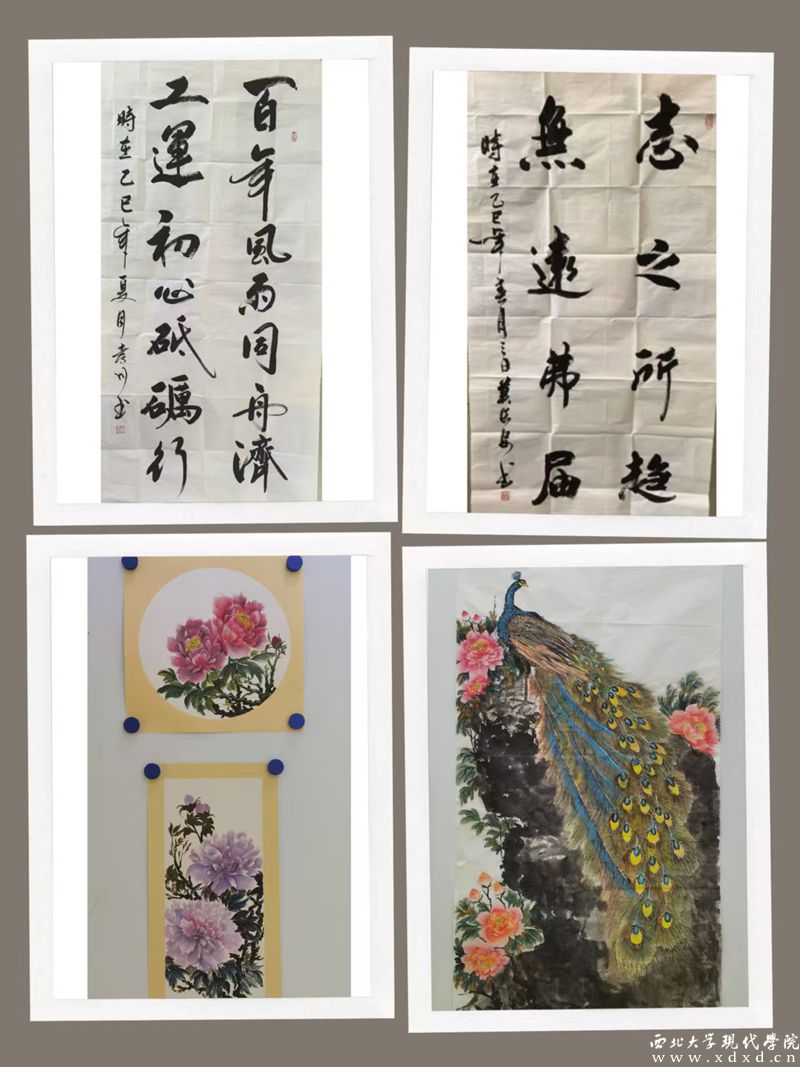 百年風雨同舟濟
工運初心砥礪行
時在乙巳年夏月书
志之所趨
無遠弗届
時在乙巳年春月三日书
西北大学现代学院
www.xdxd.cn